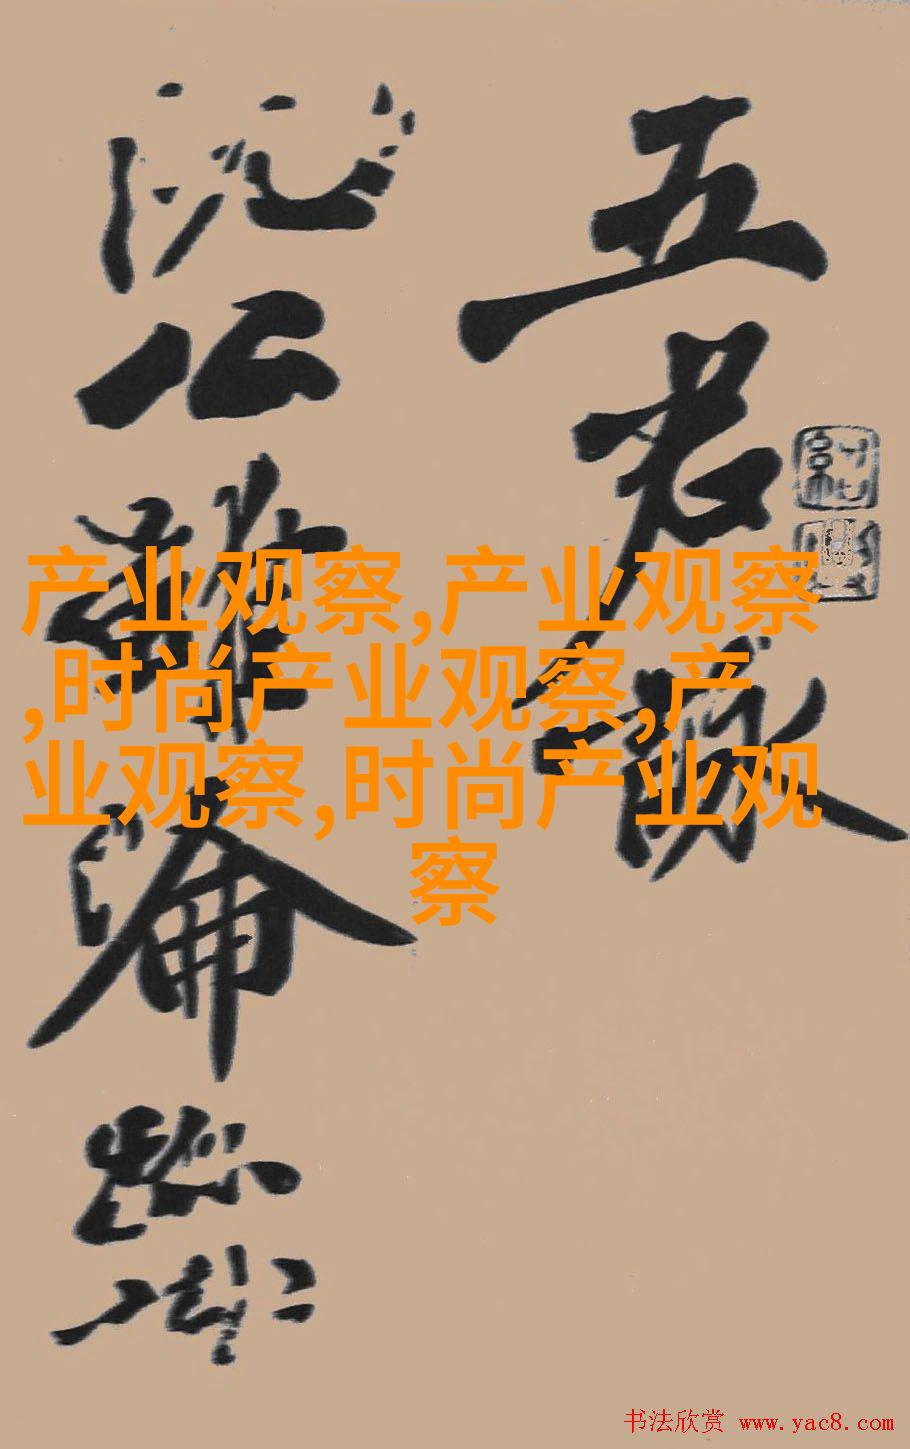 五君詠
阮公雖淪跡
产业观察,产业观察
,时尚产业观察,产
业观察,时尚产业观
察
书法欣赏 www.yac8.com